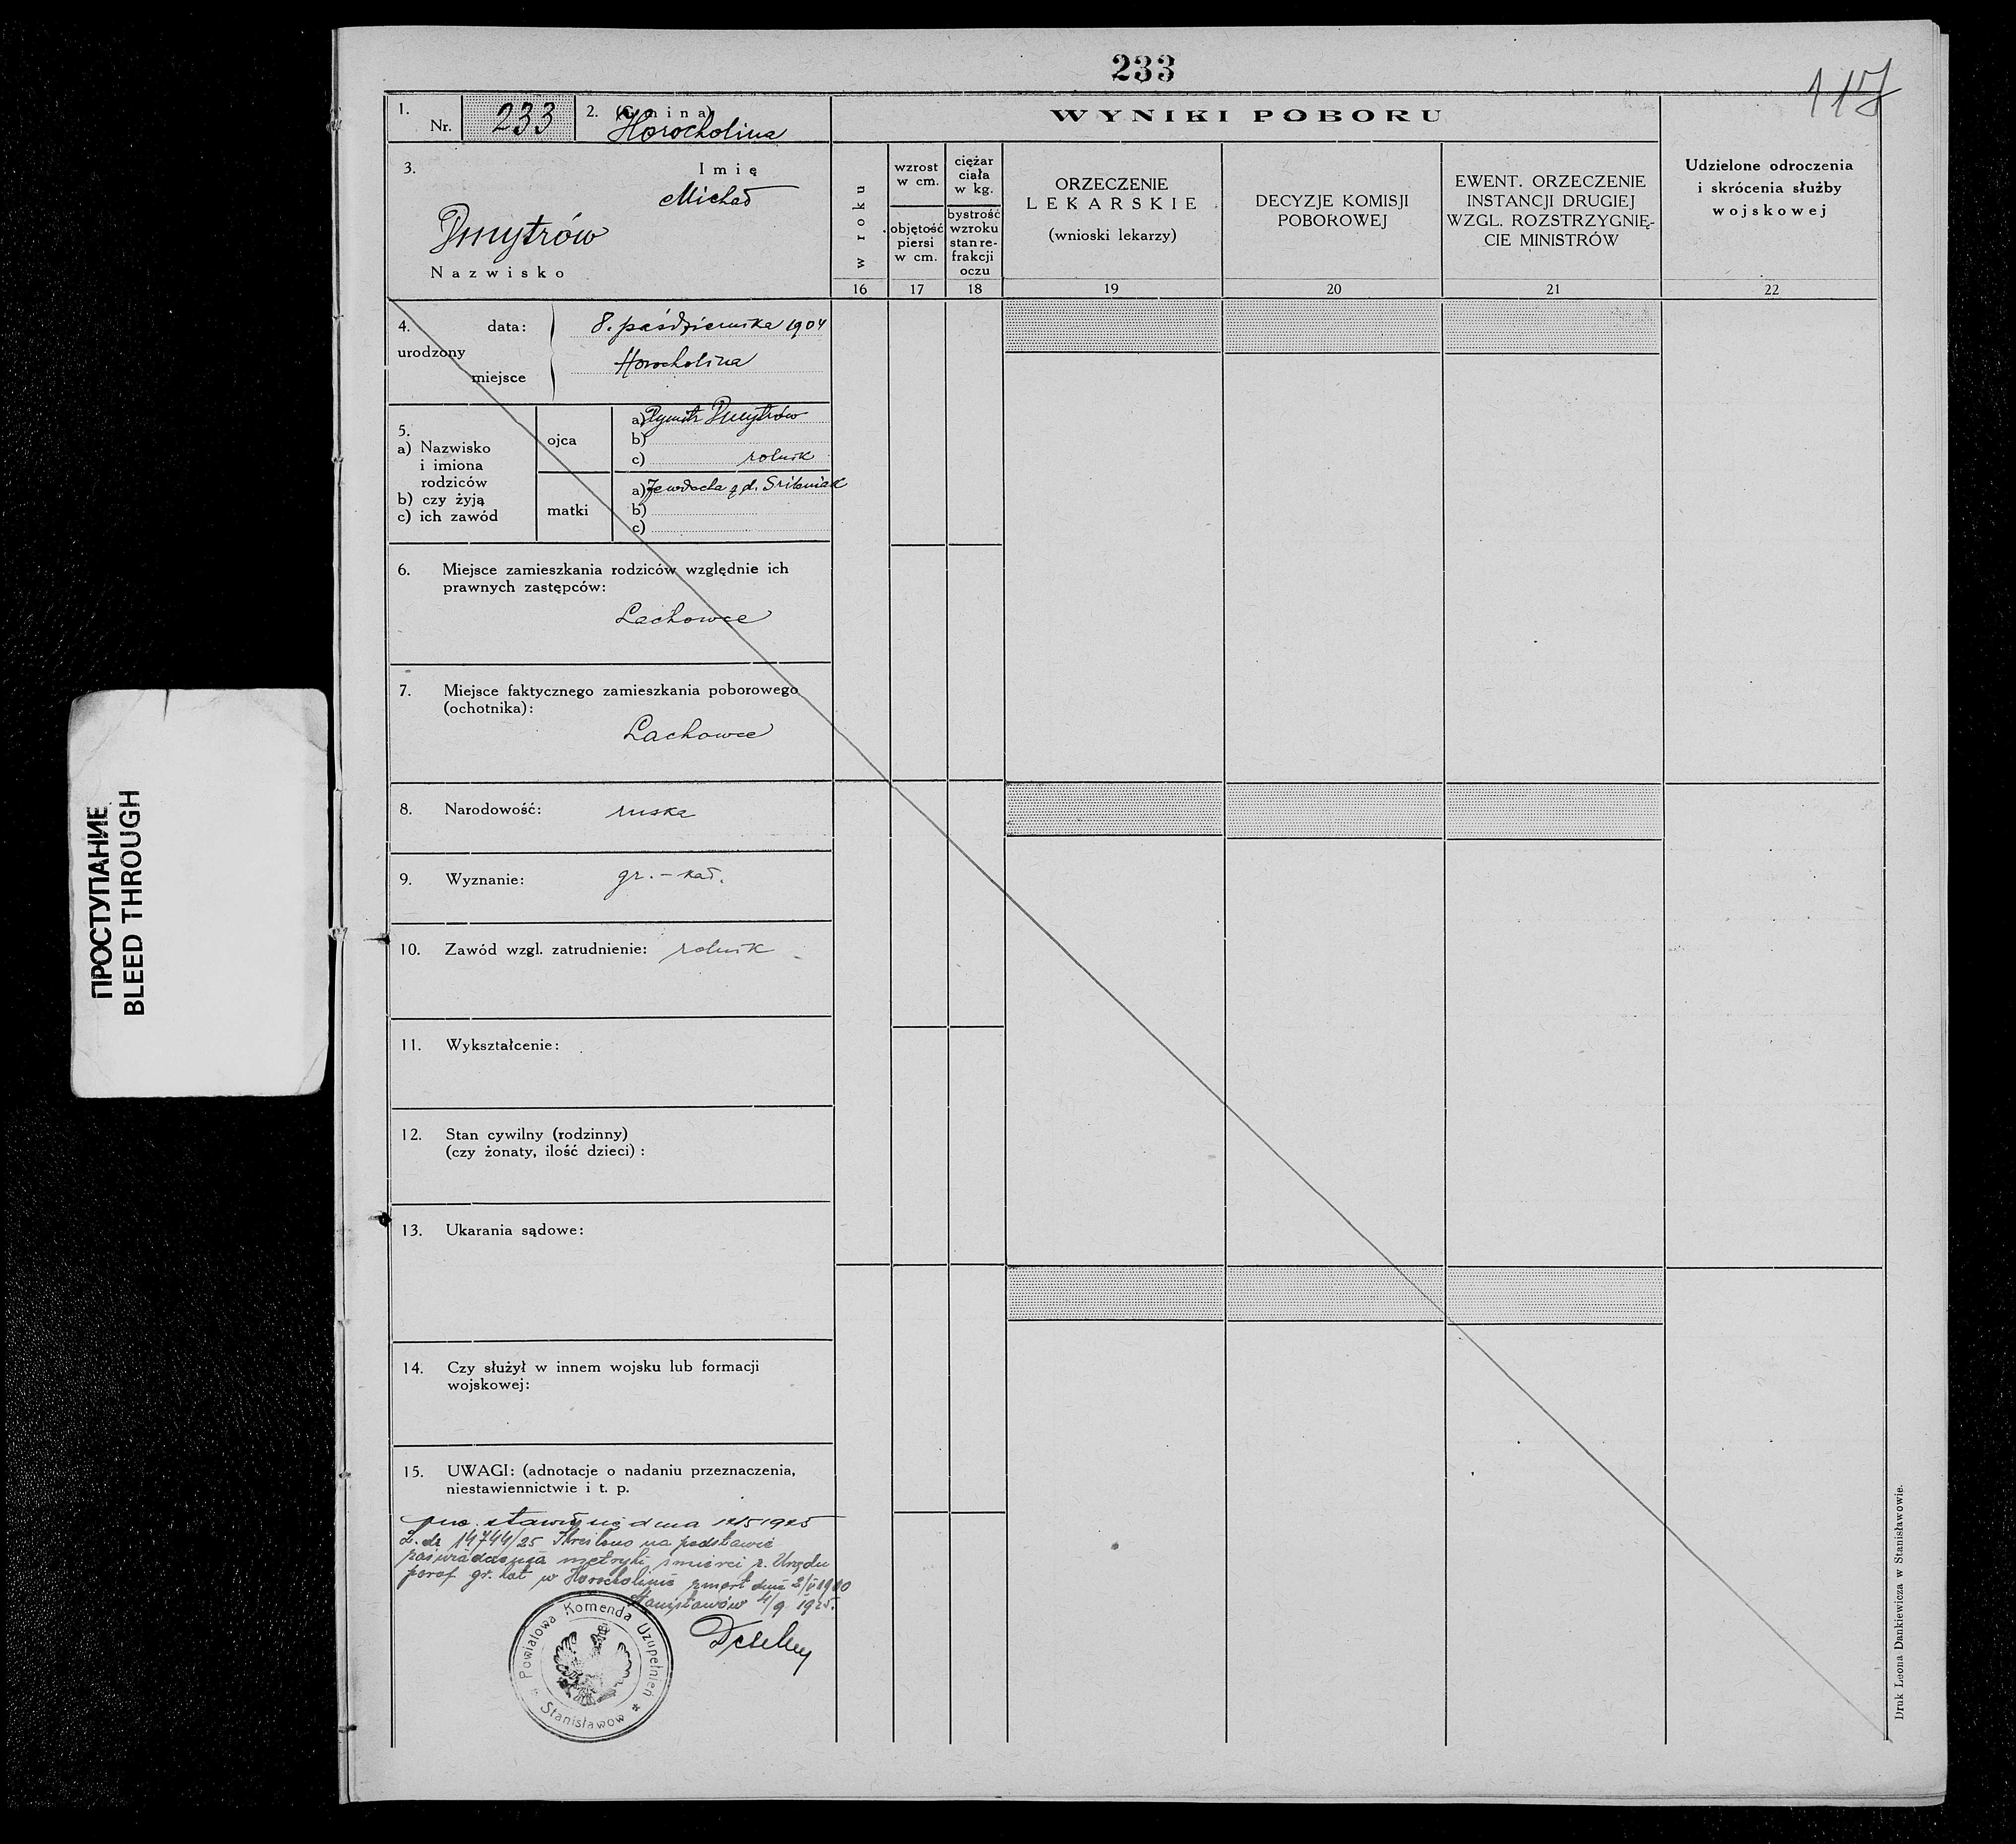 233
1. Nr. 233
2. (Gmina) Horocholina
WYNIKI POBORU
3. Imię
Michał
Dmytrów
Nazwisko
w roku
wzrost w cm.
objętość piersi w cm.
ciężar ciała w kg.
bystrość wzroku stan re-frakcji oczu
ORZECZENIE
LEKARSKIE
(wnioski lekarzy)
DECYZJE KOMISJI
POBOROWEJ
EWENT. ORZECZENIE
INSTANCJI DRUGIEJ
WZGL. ROZSTRZYGNIĘ-
CIE MINISTRÓW
Udzielone odroczenia
i skrócenia służby
wojskowej
16 17 18 19 20 21 22
4. data: 8. października 1904
urodzony
miejsce Horocholina
5.
a) Nazwisko
i imiona
rodziców
b) czy żyją
c) ich zawód
ojca
a) Dymitr Dmytrów
b)
c) rolnik
matki
a) Jewdocha z d.
b)
c)
6. Miejsce zamieszkania rodziców względnie ich
prawnych zastępców:
Lachowce
7. Miejsce faktycznego zamieszkania poborowego
(ochotnika):
Lachowce
8. Narodowość: ruska
9. Wyznanie: gr. – kat.
10. Zawód wzgl. zatrudnienie: rolnik
11. Wykształcenie:
12. Stan cywilny (rodzinny)
(czy żonaty, ilość dzieci) :
13. Ukarania sądowe:
14. Czy służył w innem wojsku lub formacji
wojskowej:
15. UWAGI: (adnotacje o nadaniu przeznaczenia,
niestawiennictwie i t. p.
stawił się dnia 1925
14744/25 Skreślono na podstawie
poświadczenia metryki śmierci z Urzędu
paraf gr. kat w Horocholinie zmarł dnia
Stanisławów 4/9 1925.
Powiatowa Komenda Uzupełnień
Stanisławów
Druk Leona Dankiewicza w Stanisławowie.
ПРОСТУПАНИЕ
BLEED THROUGH